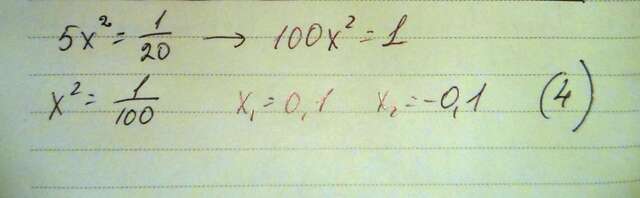 5x² = 1/20 → 100x² = 1
x² = 1/100 x₁ = 0,1 x₂ = -0,1 (4)